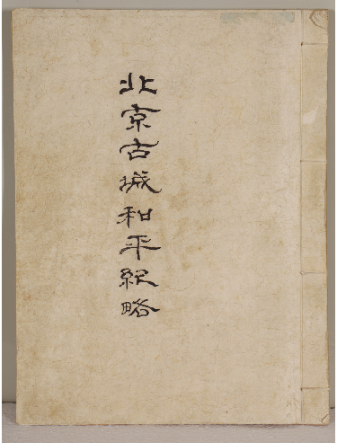 北京古城和平紀略